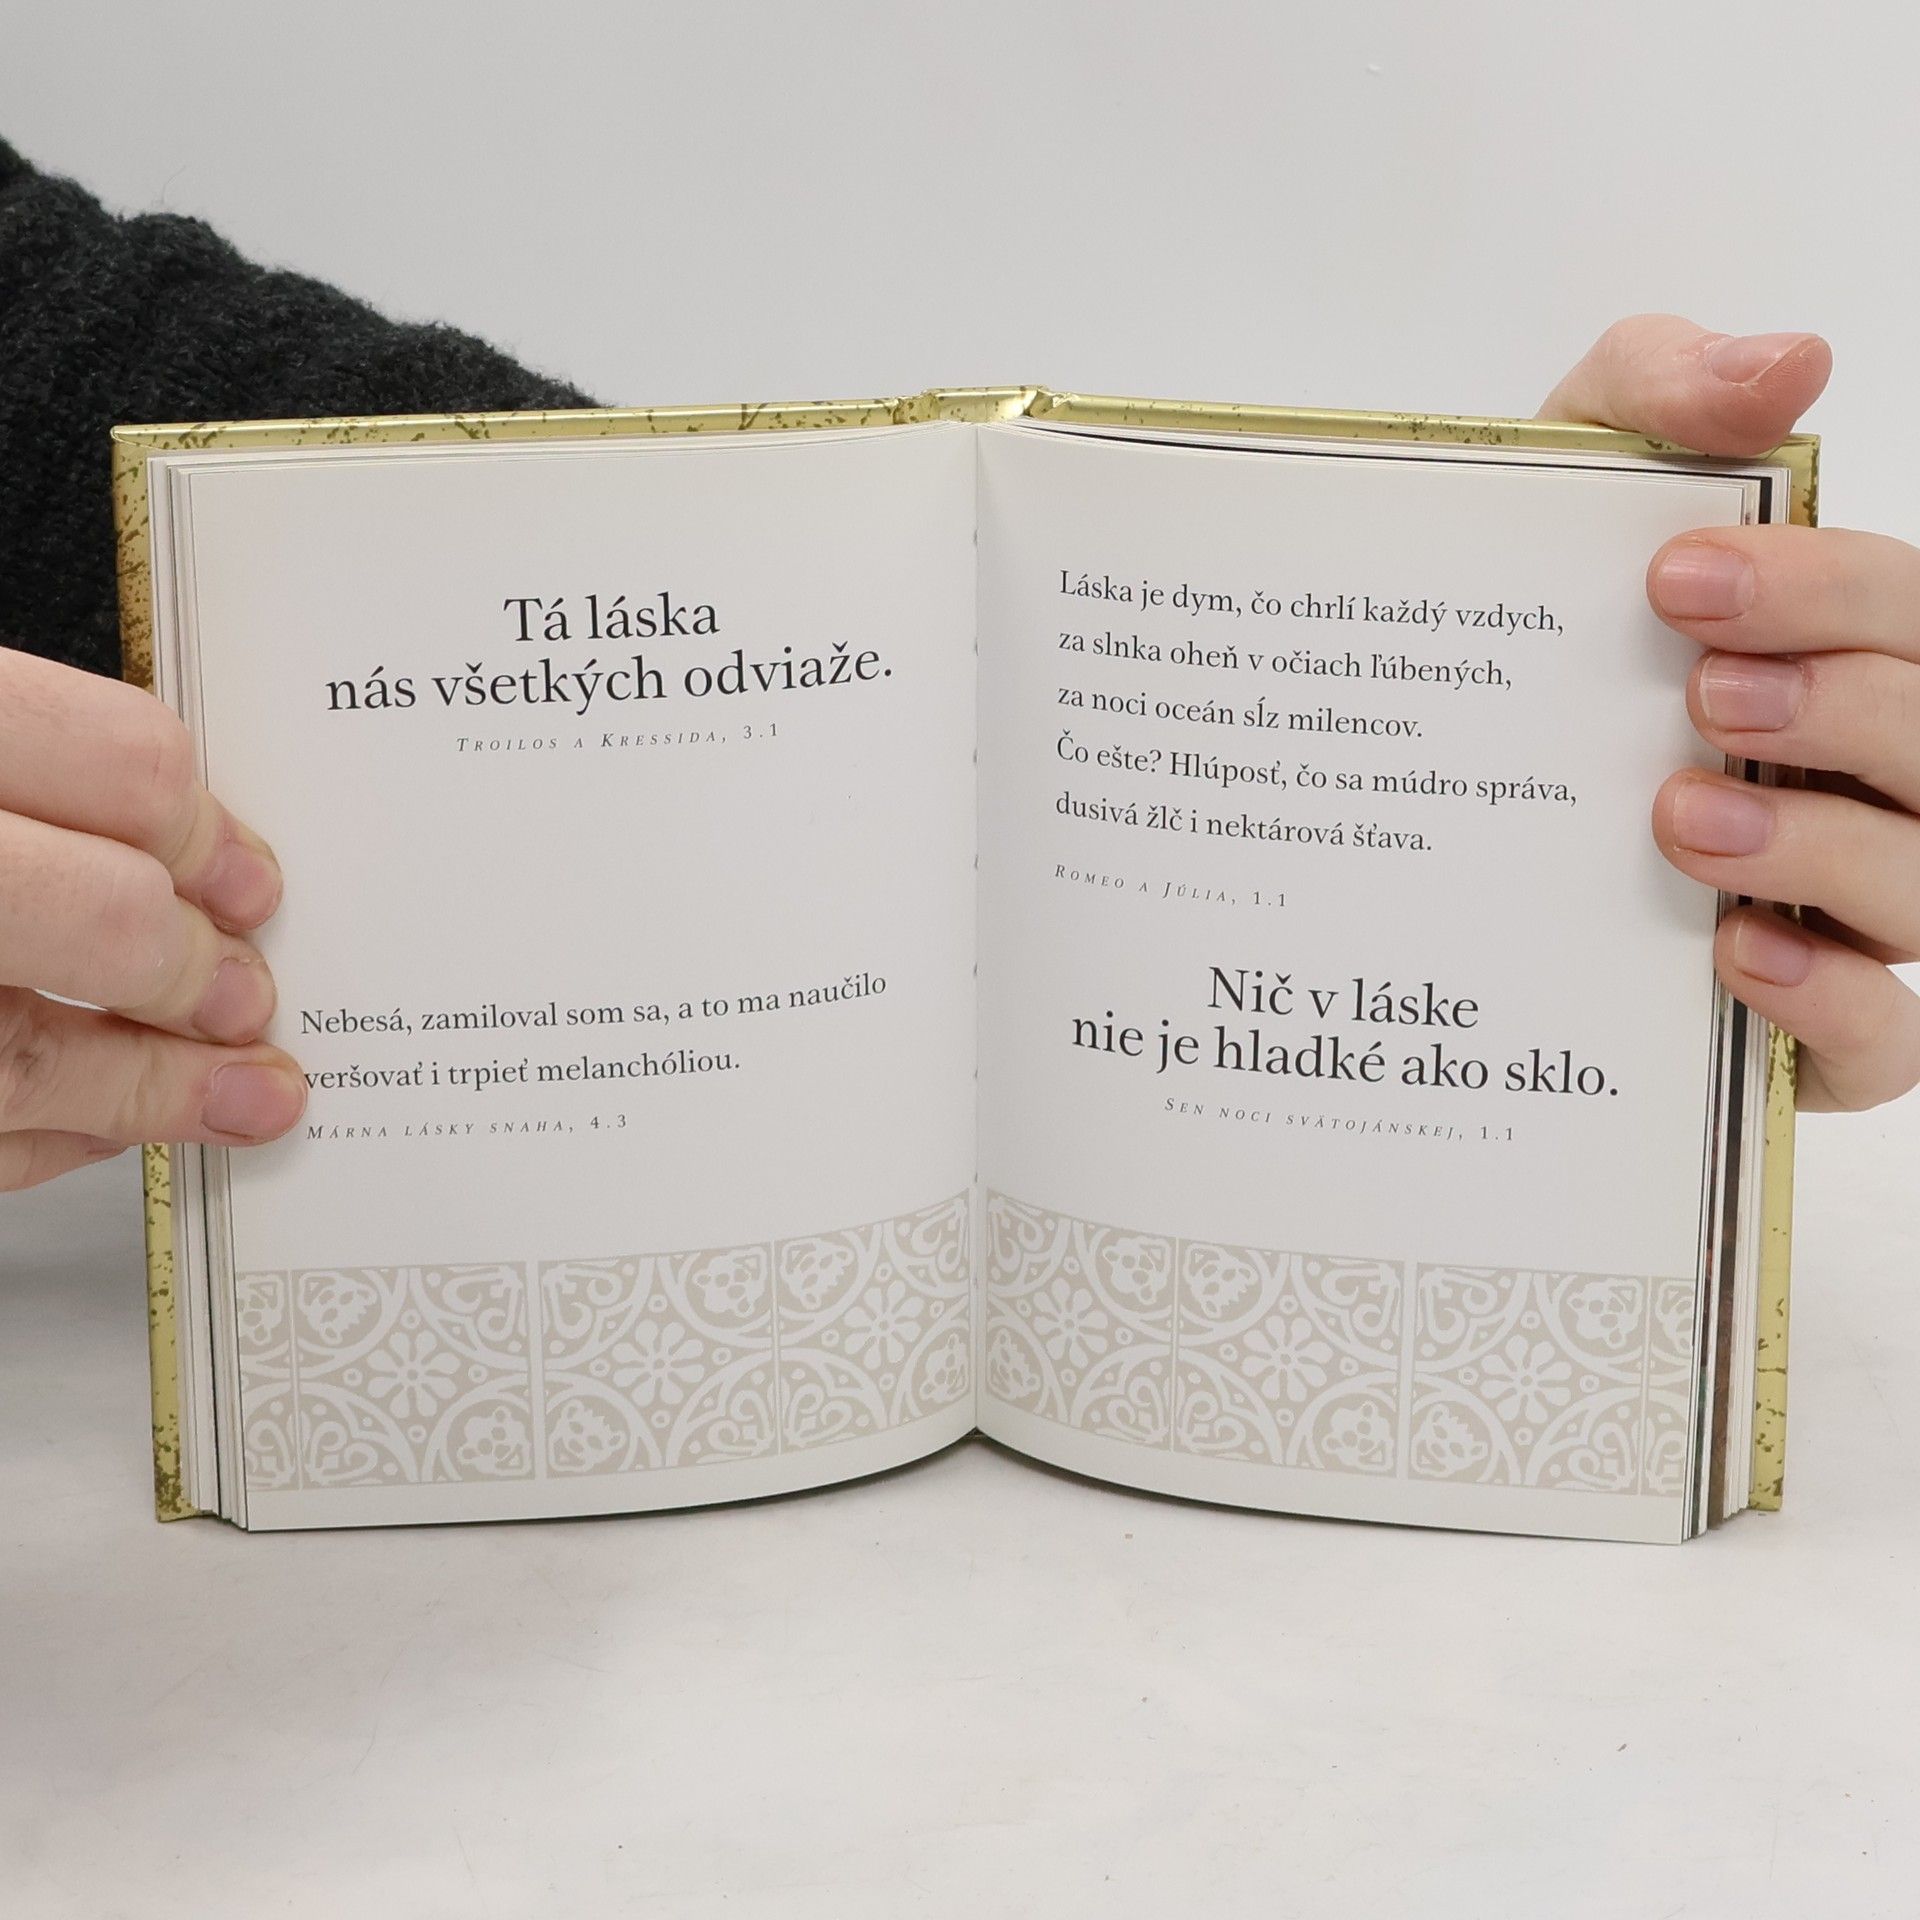 Tá láska
nás všetkých odviaže.
Troilos a Kressida, 3.1
Nebesá, zamiloval som sa, a to ma naučilo
veršovať i trpieť melanchóliou.
Márna lásky snaha, 4.3
Láska je dym, čo chrlí každý vzdych,
za slnka oheň v očiach ľúbených,
za noci oceán sĺz milencov.
Čo ešte? Hlúposť, čo sa múdro správa,
dusivá žlč i nektárová šťava.
Romeo a Júlia, 1.1
Nič v láske
nie je hladké ako sklo.
Sen noci svätojánskej, 1.1